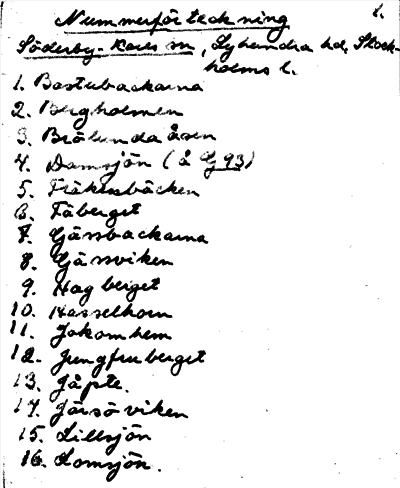 1.
Nummerförteckning
Söderby-Karls sn, Lyhundra hd, Stock-
holms l.
1. Bastubackarna
2. Bergholmen
3. Brölundaåsen
4. Damsjön (å Lj 93)
5. Fräkenbäcken
6. Fåberget
7. Gässbackarna
8. Gässviken
9. Hagberget
10. Hasselhorn
11. Jakomhem
12. Jungfruberget
13. Jåpte.
14. Järsöviken
15. Lillsjön
16. Lomsjön.